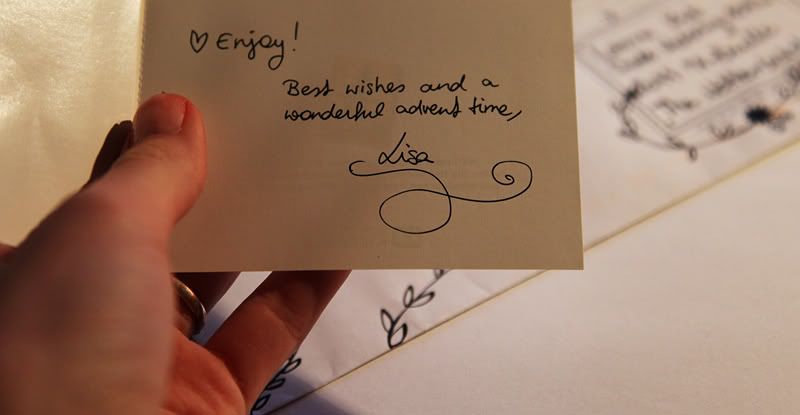 ♡ Enjoy!
Best wishes and a
wonderful advent time,
Lisa